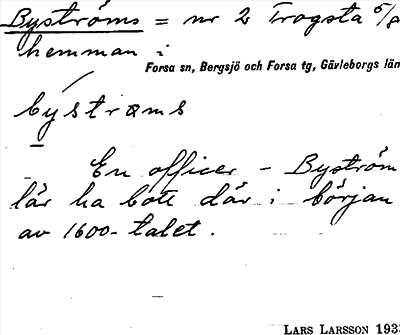 Byströms = nr 2 Trogsta 5/8
hemman i
Forsa sn, Bergsjö och Forsa tg, Gävleborgs län
býstrøms
En officer – Byström
lär ha bott där i början
av 1600-talet.
LARS LARSSON 193